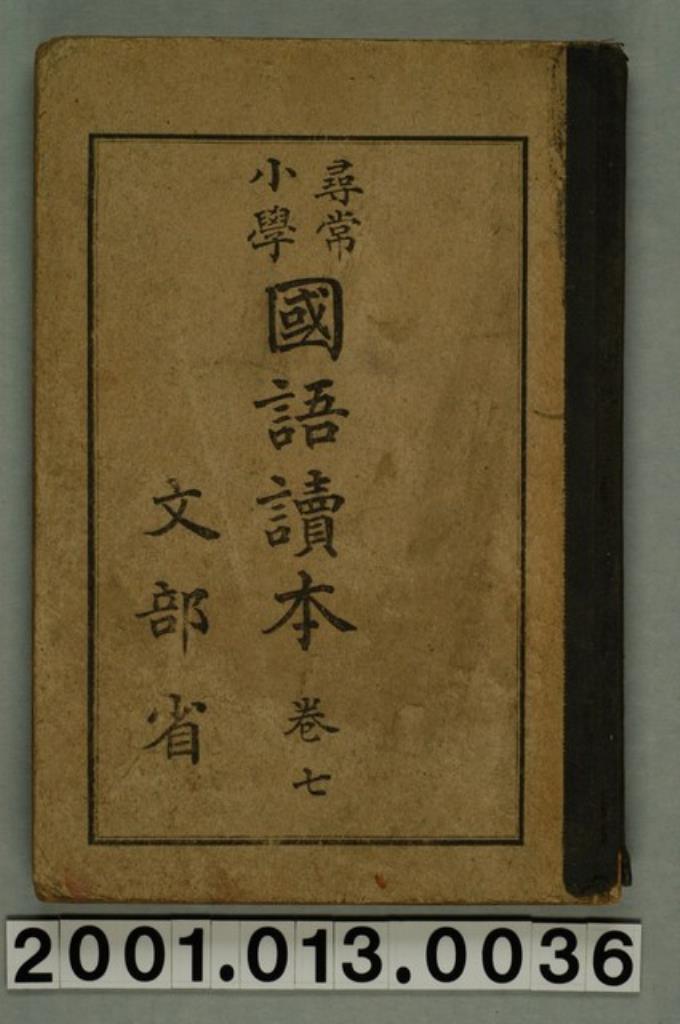 尋常
小學
國語讀本 卷七
文部省
2001.013.0036